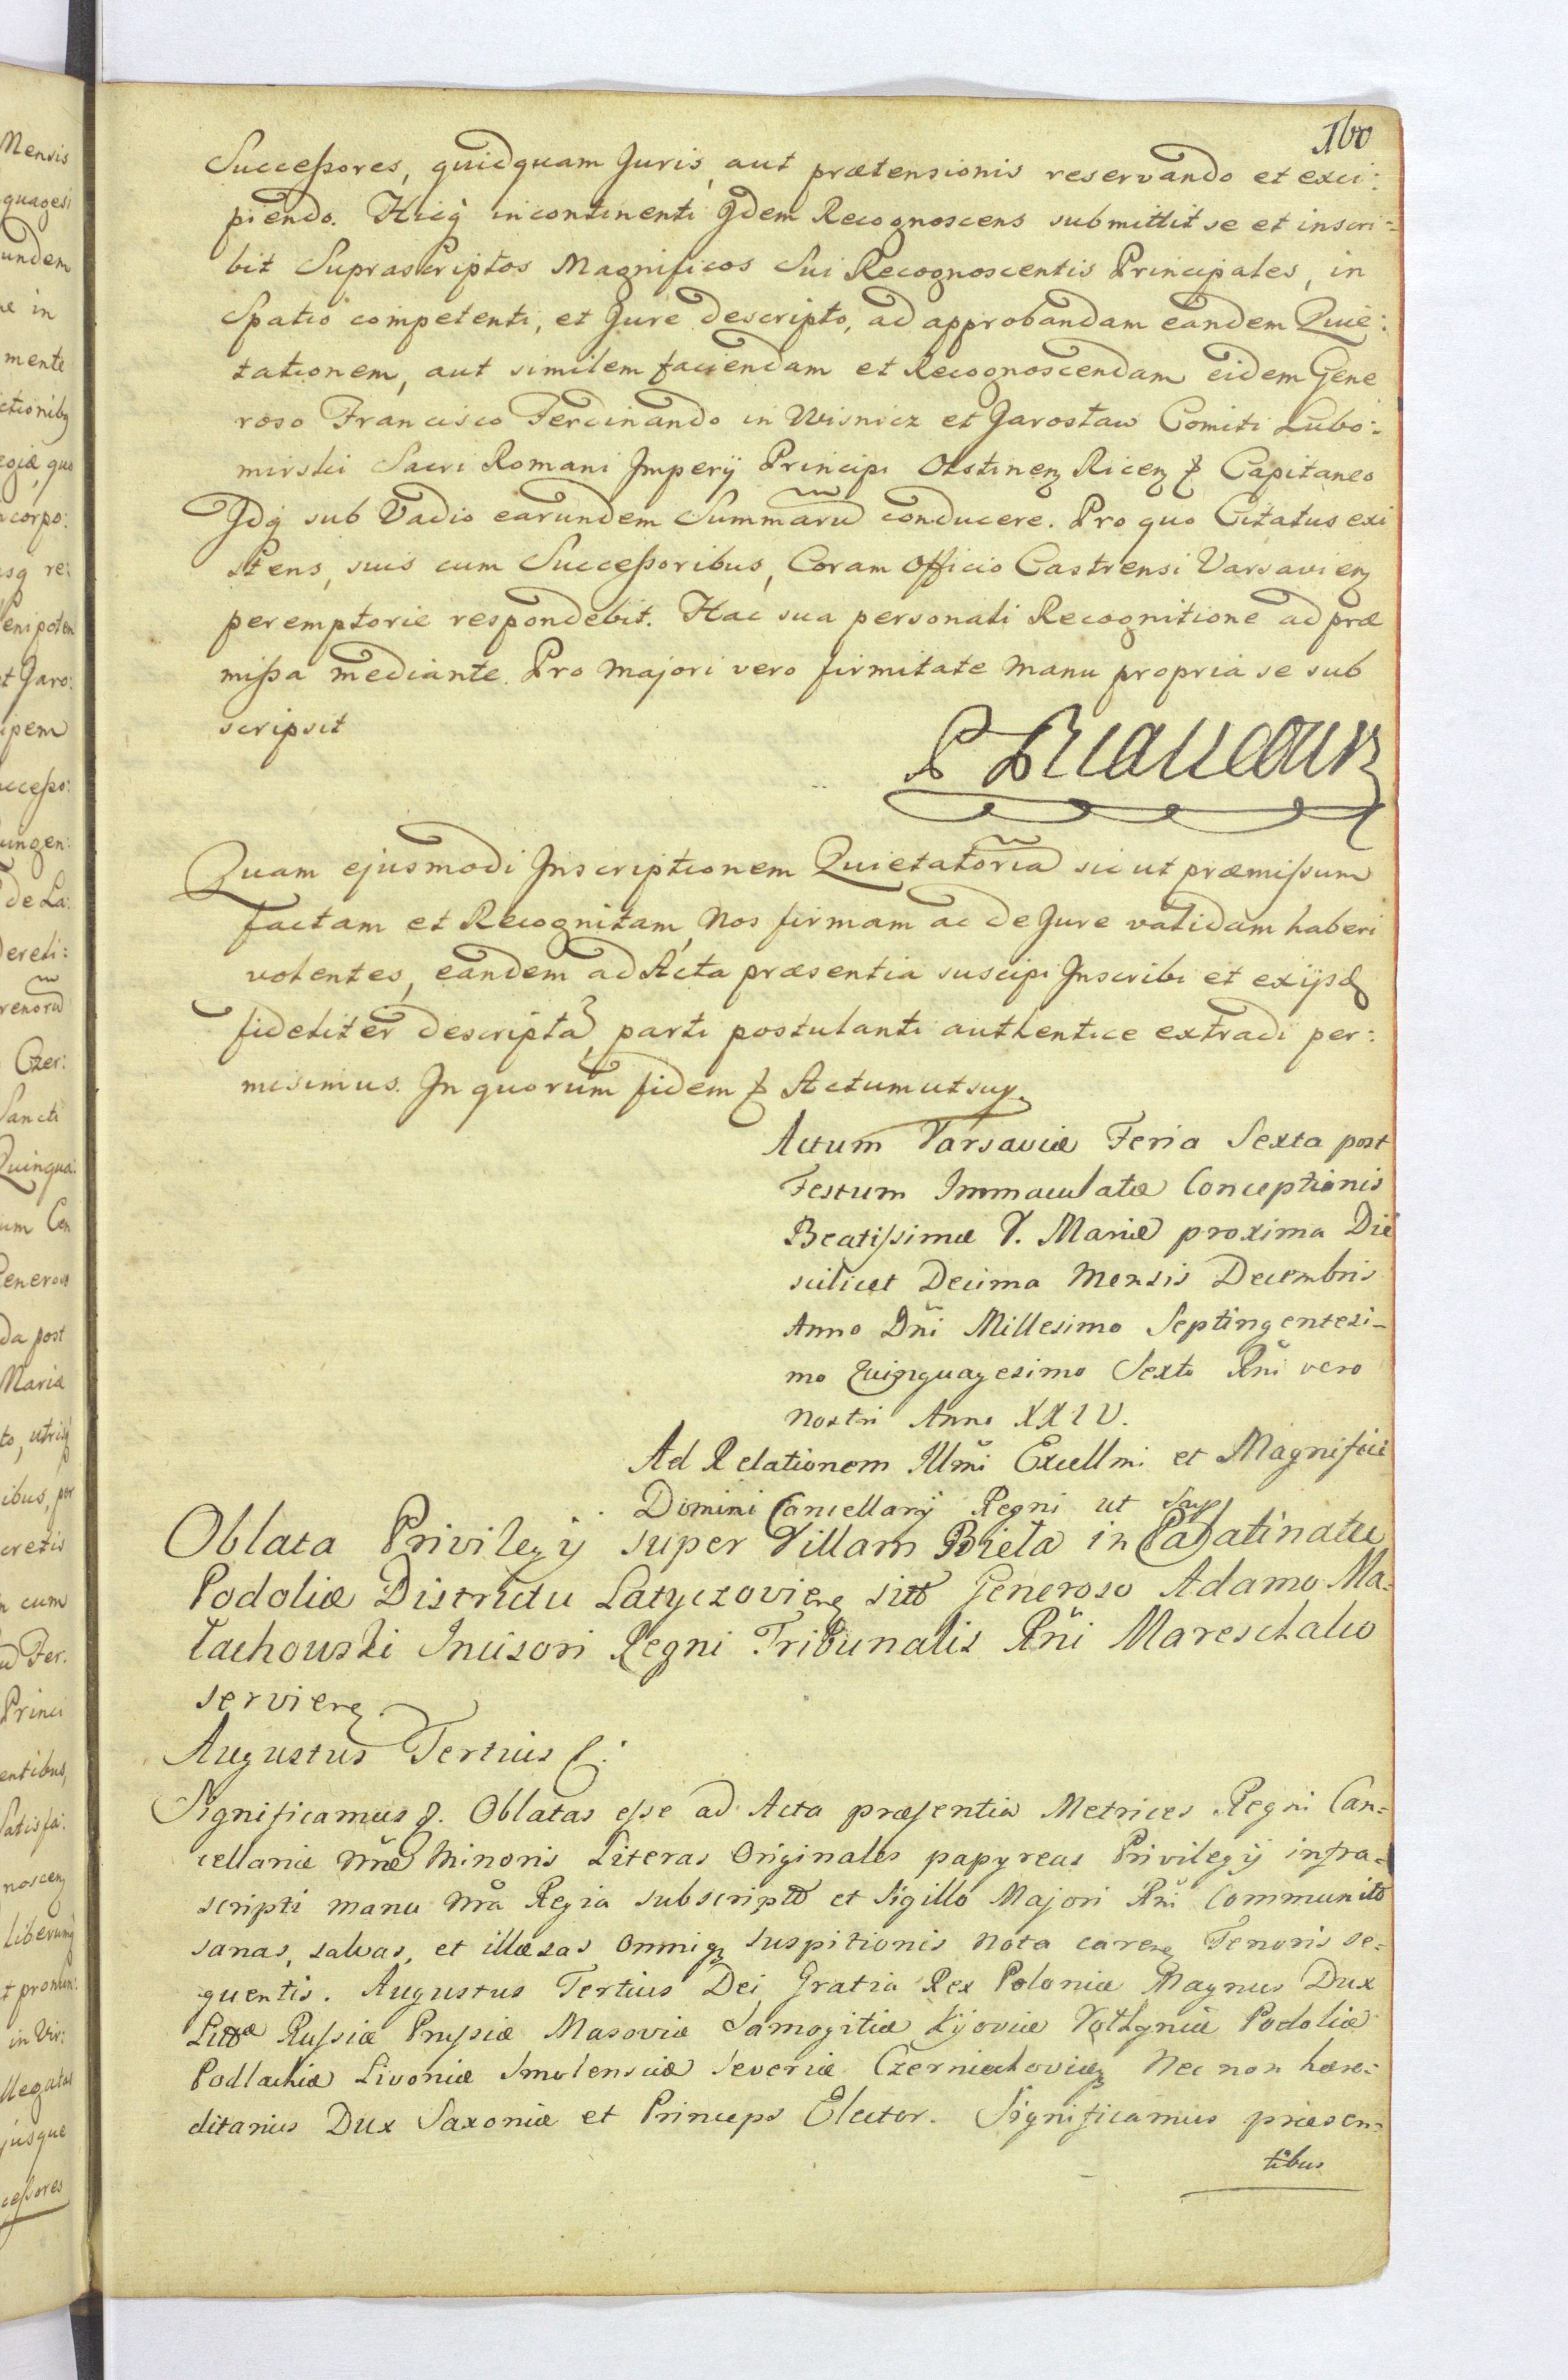 160
Successores, quidquam Juris, aut prætensionis reservando et exci:
piendo. Hicq incontinenti Idem Recognoscens submittit se et inscri=
bit Suprascriptos Magnificos Sui Recognoscentis Principales, in
Spatio competenti, et Jure descripto, ad approbandam eandem Quie:
tationem, aut similem faciendam et Recognoscendam eidem Gene
roso Francisco Ferdinando in Wisnicz et Jarosław Comiti Lubo:
mirski Sacri Romani Imperij Principi Olstinen Ricen & Capitaneo
Idq sub Vadio earundem Summarũ conducere. Pro quo Citatus exi
stens, suis cum Successoribus, Coram Officio Castrensi Varsavien
peremptorie respondebit. Hac sua personali Recognitione ad præ
missa mediante. Pro majori vero firmitate manu propria se sub
scripsit
P Driaucour
Quam ejusmodi Inscriptionem Quietatoriã sicut præmissum
factam et Recognitam, Nos firmam ac de Jure validam haberi
volentes, eandem ad Acta præsentia suscipi Inscribi et ex ijsd
fideliter descriptã, parti postulanti authentice extradi per:
misimus. In quorum fidem & Actum ut sup.
Actum Varsaviæ Feria Sexta post
Festum Immaculatæ Conceptionis
Beatissimæ V. Mariæ proxima Die
scilicet Decima Mensis Decembris
Anno Dñi Millesimo Septingentesi-
mo Quinquagesimo Sexto Rñi vero
Nostri Anno XXIV.
Ad Relationem Illmi Excellmi et Magnifici
Domini Cancellarij Regni ut Sup
Oblata Privilegij super Villam Bieła in Palatinatu
Podoliæ Districtu Latyczovien sitã Generoso Adamo Ma-
łachowski Incisori Regni Tribunalis Rñi Mareschalco
servien
Augustus Tertius &:
Significamus &. Oblatas esse ad Acta præsentia Metrices Regni Can=
cellariæ Nræ Minoris Literas Originales papyreas Privilegij infra=
scripti manu Nrã Regia subscriptas et Sigillo Majori Rñi Communitas
sanas, salvas, et illæsas omniq suspitionis nota caren Tenoris se=
quentis. Augustus Tertius Dei Gratia Rex Poloniæ Magnus Dux
Littæ Russiæ Prussiæ Masoviæ Samogitiæ Kijoviæ Volhyniæ Podoliæ
Podlachiæ Livoniæ Smolensciæ Severiæ Czerniechoviæq Nec non hære=
ditarius Dux Saxoniæ et Princeps Elector. Significamus præsen=
tibus